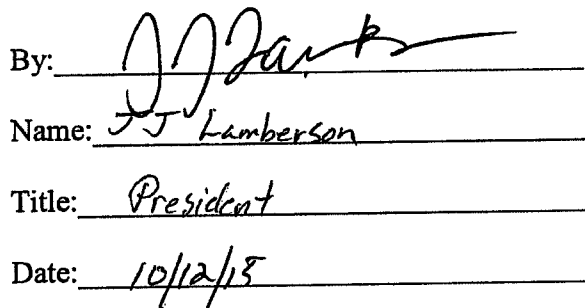 By: JJ Lamb
Name: JJ Lamberson
Title: President
Date: 10/12/15